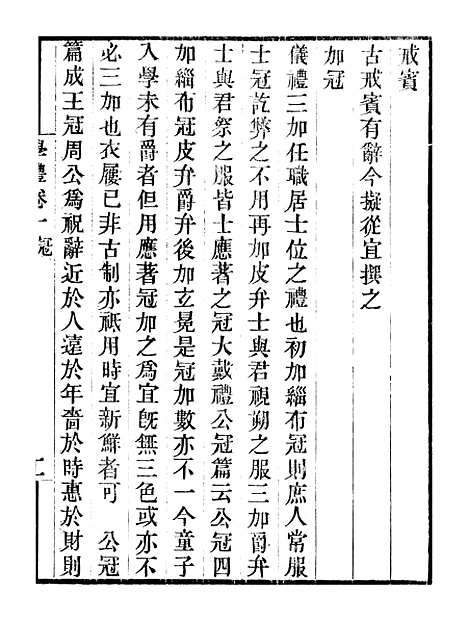 戒賓
古戒賓有辭今擬從宜撰之
加冠
儀禮三加任職居士位之禮也初加緇布冠則庶人常服
士冠訖弊之不用再加皮弁士與君視朔之服三加爵弁
士與君祭之服皆士應著之冠大戴禮公冠篇云公冠四
加緇布冠皮弁爵弁後加玄冕是冠加數亦不一今童子
入學未有爵者但用應著冠加之爲宜旣無三色或亦不
必三加也衣屨已非古制亦祗用時宜新鮮者可　公冠
篇成王冠周公爲祝辭近於人遠於年嗇於時惠於財則
學禮卷一冠